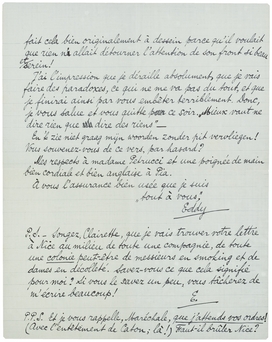 fait cela bien originalement à dessein parce qu'il voulait
que rien n'allait détourner l'attention de son front si beau
serein!
J'ai l'impression que je déraille absolument, que je vais
faire des paradoxes, ce qui ne me va pas du tout, et que
je finirai ainsi par vous embêter terriblement. Donc,
je vous salue et vous quitte pour ce soir. Mieux vaut ne
dire rien que de dire des riens".
En U zie niet graag mijn woorden zonder pit vervliegen!
Vous souvenez-vous de ce vers, par hasard?
Mes respects à madame Petrucci et une poignée de main
bien cordiale et bien anglaise à Pia.
À vous l'assurance bien usée que je suis
tout à vous,
Eddy
P.S.- Songez, Clairette, que je vais trouver votre lettre
à Nice au milieu de toute une compagnie, de toute
une colonie peut-être de messieurs en smoking et de
dames en décolleté. Savez-vous ce que cela signifie
pour moi? Si vous le savez un peu, vous tâcherez de
m'écrire beaucoup!
E
P.P.S. Et je vous rappelle, Maréchale, que j'attends vos ordres!
(Avec l'entêtement de Caton; là!) Faut-il brûler Nice?